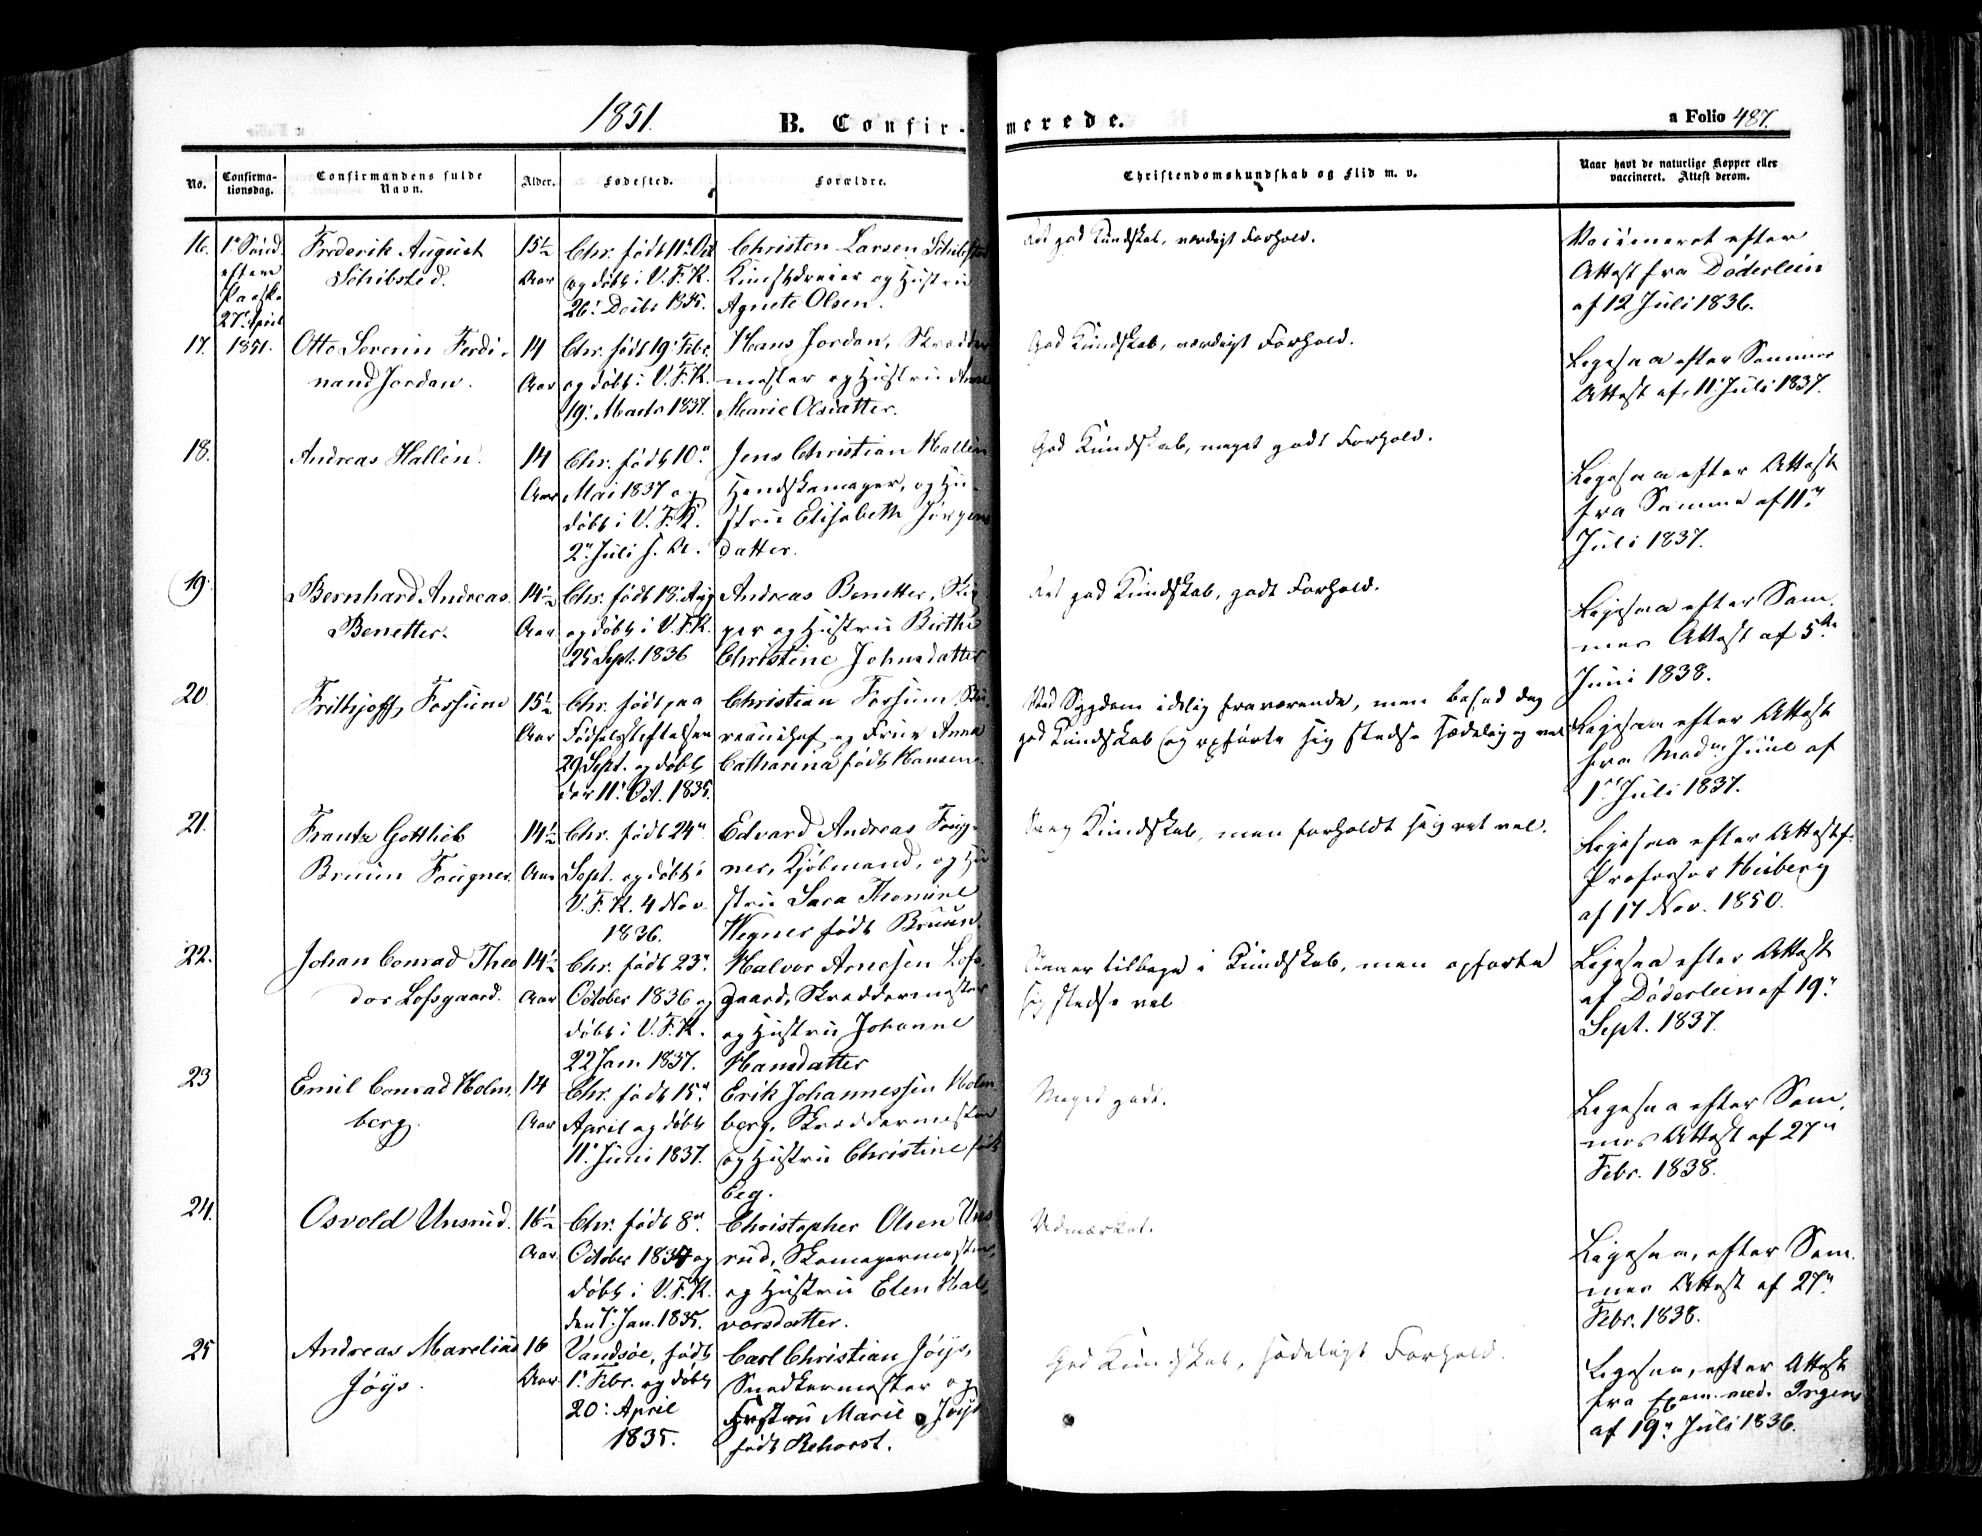 1851.
B. Confirmerede.
a Folio 487.
No.
Confirma-
tionsdag.
Confirmandens fulde
Navn.
Alder.
Fødested.
Forældre.
Christendomskundskab og Flid m. v.
Naar havt de naturlige Kopper eller
vaccineret. Attest derom.
16.
1e Sønd.
efter
Paaske
27e April
1851.
Frederik August
Schibsted.
15½
Aar
Chr. født 11te Oct
og døbt i V. F. K.
26: Decbr 1835.
Christen Larsen Schibsted
Kunstdreier og Hustru
Agnete Olsen.
Ret god Kundskab, værdigt Forhold.
Vaccineret efter
Attest fra Døderlein
af 12 Juli 1836.
17.
Otto Severin Ferdi-
nand Jordan.
14
Aar
Chr. født 19: Febr.
og døbt i V. F. K.
19: Marts 1837.
Hans Jordan, Skrædder
mester og Hustru Anne
Marie Olsdatter.
God Kundskab, værdigt Forhold.
Ligesaa efter Sammes
Attest af 11: Juli 1837.
18.
Andreas Hallén.
14
Aar
Chr. født 10:
Mai 1837 og
døbt i V. F. K.
2: Juli s. A.
Jens Christian Hallén
Handskemager, og Hu-
stru Elisabeth Jørgens
datter.
God Kundskab, meget godt Forhold.
Ligesaa efter Attest
fra Samme af 11te
Juli 1837.
19.
Bernhard Andreas
Benetter.
14½
Aar
Chr. født 18: Aug
og døbt i V. F. K.
25 Sept: 1836
Andreas Benetter, Skip
per og Hustru Birthe
Christine Johnsdatter
Ret god Kundskab, godt Forhold.
Ligesaa efter Sam-
mes Attest af 5te
Juni 1838.
20
Frithjoff Fossum
15½
Aar
Chr. født paa
Fødselsstiftelsen
29 Sept. og døbt
der 11: Oct. 1835.
Christian Fossum, Bu
reauchef og Frue Anna
Catharina født Hansen.
Ved Sygdom idelig fraværende, men besad dog
god Kundskab og opførte sig stedse sædelig og vel
Ligesaa efter Attest
fra Mad. Juul af
1: Juli 1837.
21.
Frantz Gottlieb
Bruun Fougner.
14½
Aar
Chr. født 24:
Sept. og døbt i
V. F. K. 4 Nov.
1836.
Edvard Andreas Foug-
ner, Kjøbmand, og Hu
stru Sara Thomine
Wegner født Bruun.
Svag Kundskab, men forholdt sig ret vel.
Ligesaa efter Attest f.
Professor Heiberg
af 17 Nov. 1850.
22.
Johan Conrad Theo
dor Lofsgaard.
14½
Aar
Chr. født 23:
October 1836 og
døbt i V. F. K.
22 Jan. 1837.
Halvor Arnesen Lofs-
gaard, Skræddermester
og Hustru Johanne
Hansdatter
tilbage i Kundskab, men opførte
sig stedse vel
Ligesaa efter Attest
af Døderlein af 19:
Sept. 1837.
23
Emil Conrad Holm-
berg.
14
Aar
Chr. født 15:
April og døbt
11: Juni 1837.
Erik Johannessen Holm
berg, Skræddermester
og Hustru Christine født
Eeg.
Meget godt.
Ligesaa efter Sam-
mes Attest af 27:
Febr. 1838.
24.
Osvold Unsrud.
16½
Aar
Chr. født 8:
October 1834 og
døbt i V. F. K.
den 1: Jan. 1835.
Christopher Olsen Uns
rud, Skomagermester,
og Hustru Elen Hal-
vorsdatter.
Udmærket.
Ligesaa, efter Sam-
mes Attest af 27:
Febr. 1838.
25
Andreas Marelius
Jøys.
16
Aar
Vandsøe, født
1: Febr. og døbt
20: April
1835.
Carl Christian Jøys,
Snedkermester og
Hustru Marie Jøys
født Rehorst.
God Kundskab, sædeligt Forhold.
Ligesaa, efter Attest
fra Exam. med. Irgens
af 19: Juli 1836.